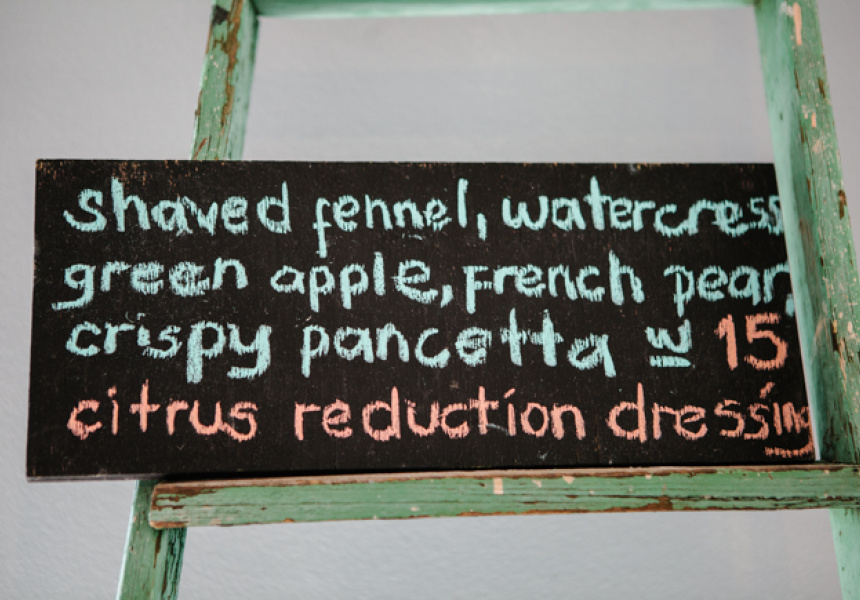 shaved fennel, watercress
green apple, French pear,
crispy pancetta w 15
citrus reduction dressing